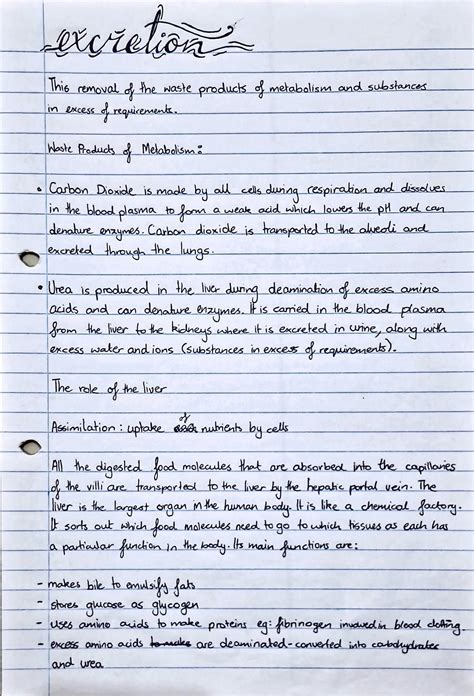 excretion
This removal of the waste products of metabolism and substances
in excess of requirements.
Waste Products of Metabolism:
• Carbon Dioxide is made by all cells during respiration and dissolves
in the blood plasma to form a weak acid which lowers the pH and can
denature enzymes. Carbon dioxide is transported to the alveoli and
excreted through the lungs.
• Urea is produced in the liver during deamination of excess amino
acids and can denature enzymes. It is carried in the blood plasma
from the liver to the kidneys where it is excreted in urine, along with
excess water and ions (substances in excess of requirements).
The role of the liver
Assimilation: uptake of nutrients by cells
All the digested food molecules that are absorbed into the capillaries
of the villi are transported to the liver by the hepatic portal vein. The
liver is the largest organ in the human body. It is like a chemical factory.
It sorts out which food molecules need to go to which tissues as each has
a particular function in the body. Its main functions are:
- makes bile to emulsify fats
- stores glucose as glycogen
- uses amino acids to make proteins eg: fibrinogen involved in blood clotting.
- excess amino acids to make are deaminated-converted into carbohydrates
and urea